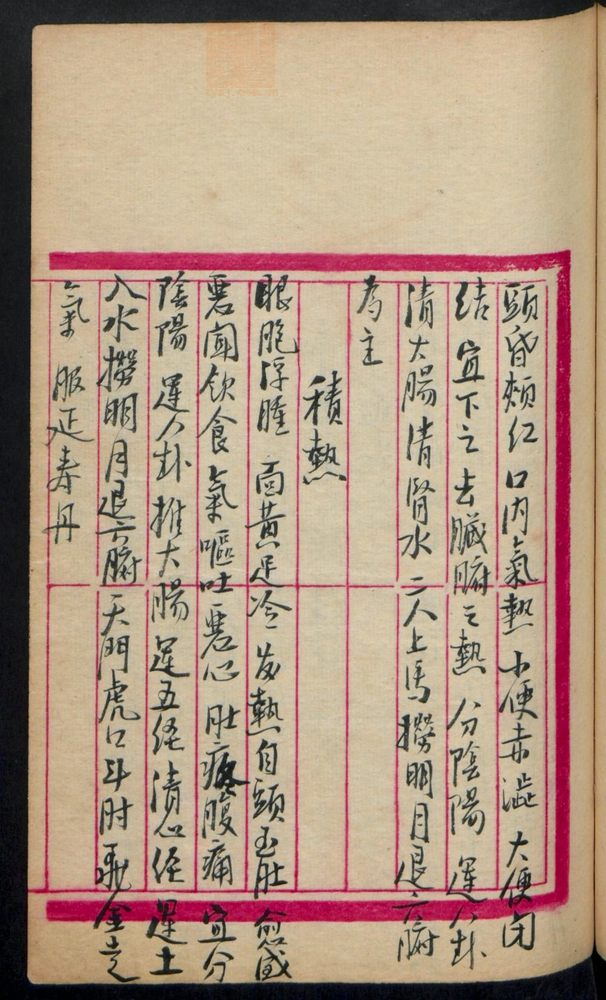 頭昏頰紅 口內氣熱 小便赤澁 大便閉
結 宜下之 去臟腑之熱 分陰陽 運八卦
清大腸 清腎水 二人上馬 撈明月 退六腑
為主
積熱
眼胞浮腫 面黃足冷 发熱自頭至肚 愈盛
悪闻飲食 氣嘔吐悪心 肚疼腹痛 宜分
陰陽 運八卦 推大腸 運五經 清心經 運土
入水 撈明月 退六腑 天門虎口斗肘 飛金走
氣 服延寿丹